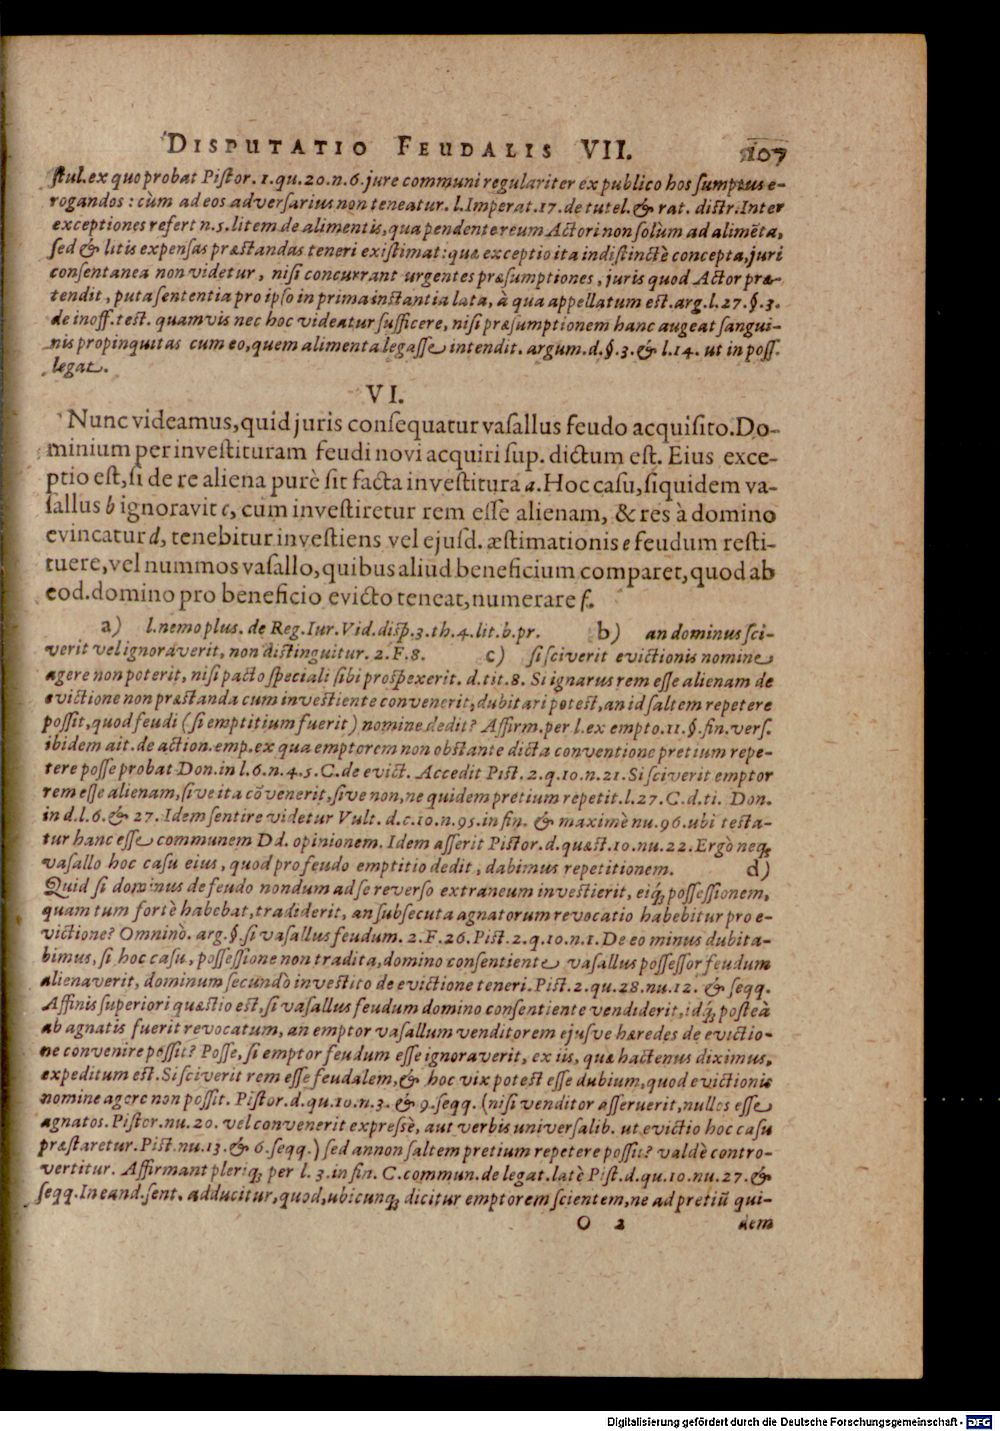 DISPUTATIO FEUDALIS VII. 107
ſtul. ex quo probat Piſtor. 1. qu. 20. n. 6. jure communi regulariter ex publico hos ſumptus e-
rogandos: cùm ad eos adverſarius non teneatur. l. Imperat. 17. de tutel. & rat. diſtr. Inter
exceptiones refert n. 5. litem de alimentis, qua pendente reum Actori non ſolum ad alimēta,
ſed & litis expenſas præſtandas teneri exiſtimat: quæ exceptio ita indiſtinctè concepta, juri
conſentanea non videtur, niſi concurrant urgentes præſumptiones, juris quod Actor præ-
tendit, puta ſententia pro ipſo in prima inſtantia lata, à qua appellatum eſt. arg. l. 27. §. 3.
de inoff. teſt. quamvis nec hoc videatur ſufficere, niſi præſumptionem hanc augeat ſangui-
nis propinquitas cum eo, quem alimenta legaſſe intendit. argum. d. §. 3. & l. 14. ut in poſſ.
legat.
VI.
Nunc videamus, quid juris conſequatur vaſallus feudo acquiſito. Do-
minium per inveſtituram feudi novi acquiri ſup. dictum eſt. Eius exce-
ptio eſt, ſi de re aliena purè ſit facta inveſtitura a. Hoc caſu, ſiquidem va-
ſallus b ignoravit c, cum inveſtiretur rem eſſe alienam, & res à domino
evincatur d, tenebitur inveſtiens vel ejuſd. æſtimationis e feudum reſti-
tuere, vel nummos vaſallo, quibus aliud beneficium comparet, quod ab
eod. domino pro beneficio evicto teneat, numerare f.
a) l. nemo plus. de Reg. Iur. Vid. diſp. 3. th. 4. lit. b. pr. b) an dominus ſci-
verit vel ignoraverit, non diſtinguitur. 2. F. 8. c) ſi ſciverit evictionis nomine
agere non poterit, niſi pacto ſpeciali ſibi proſpexerit. d. tit. 8. Si ignarus rem eſſe alienam de
evictione non præſtanda cum inveſtiente convenerit, dubitari poteſt, an id ſaltem repetere
poſſit, quod feudi (ſi emptitium fuerit) nomine dedit? Affirm. per l. ex empto. 11. §. fin. verſ.
ibidem ait. de action. emp. ex qua emptorem non obſtante dicta conventione pretium repe-
tere poſſe probat Don. in l. 6. n. 4. 5. C. de evict. Accedit Piſt. 2. q. 10. n. 21. Si ſciverit emptor
rem eſſe alienam, ſive ita cōvenerit, ſive non, ne quidem pretium repetit. l. 27. C. d. ti. Don.
in d. l. 6. & 27. Idem ſentire videtur Vult. d. c. 10. n. 95. in fin. & maximè nu. 96. ubi teſta-
tur hanc eſſe communem Dd. opinionem. Idem aſſerit Piſtor. d. quæſt. 10. nu. 22. Ergò neq;
vaſallo hoc caſu eius, quod pro feudo emptitio dedit, dabimus repetitionem. d)
Quid ſi dominus de feudo nondum ad ſe reverſo extraneum inveſtierit, eiq; poſſeſſionem,
quam tum fortè habebat, tradiderit, an ſubſecuta agnatorum revocatio habebitur pro e-
victione? Omninò. arg. §. ſi vaſallus feudum. 2. F. 26. Piſt. 2. q. 10. n. 1. De eo minus dubita-
bimus, ſi hoc caſu, poſſeſſione non tradita, domino conſentiente vaſallus poſſeſſor feudum
alienaverit, dominum ſecundò inveſtito de evictione teneri. Piſt. 2. qu. 28. nu. 12. & ſeqq.
Affinis ſuperiori quæſtio eſt, ſi vaſallus feudum domino conſentiente vendiderit, idq; poſteà
ab agnatis fuerit revocatum, an emptor vaſallum venditorem ejuſve hæredes de evictio-
ne convenire poſſit? Poſſe, ſi emptor feudum eſſe ignoraverit, ex iis, quæ hactenus diximus,
expeditum eſt. Si ſciverit rem eſſe feudalem, & hoc vix poteſt eſſe dubium, quod evictionis
nomine agere non poſſit. Piſtor. d. qu. 10. n. 3. & 9. ſeqq. (niſi venditor aſſeruerit, nullos eſſe
agnatos. Piſtor. nu. 20. vel convenerit expreſsè, aut verbis univerſalib. ut evictio hoc caſu
præſtaretur. Piſt. nu. 13. & 6. ſeqq.) ſed annon ſaltem pretium repetere poſſit? valdè contro-
vertitur. Affirmant pleriq; per l. 3. in fin. C. commun. de legat. latè Piſt. d. qu. 10. nu. 27. &
ſeqq. In eand. ſent. adducitur, quod, ubicunq; dicitur emptorem ſcientem, ne ad pretiū qui-
O 2 dem
Digitalisierung gefördert durch die Deutsche Forschungsgemeinschaft - DFG